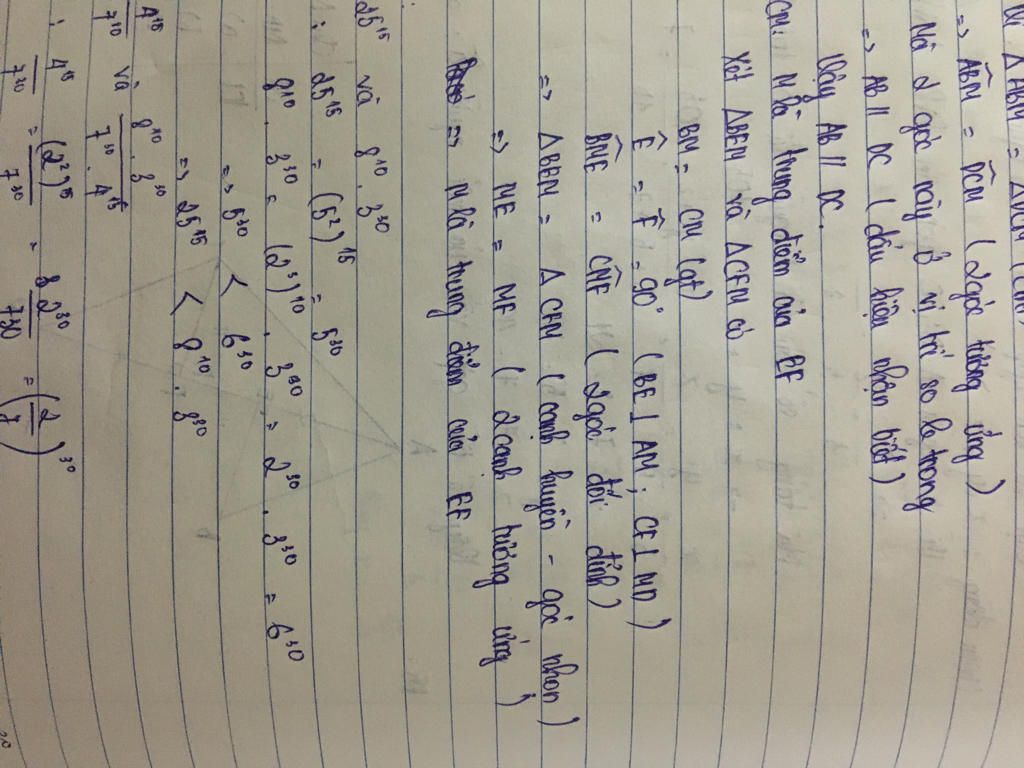 Vì △ABM = △DCM (cmt)
=> ABM̂ = DCM̂ ( 2 góc tương ứng )
Mà 2 góc này ở vị trí so le trong
=> AB // DC ( dấu hiệu nhận biết )
Vậy AB // DC.
CM: M là trung điểm của EF
Xét △BEM và △CFM có
BM = CM (gt)
Ê = F̂ = 90° ( BE ⊥ AM ; CF ⊥ MD )
BMÊ = CMF̂ ( 2 góc đối đỉnh )
=> △BEM = △CFM ( cạnh huyền - góc nhọn )
=> ME = MF ( 2 cạnh tương ứng )
=> M là trung điểm của EF
25¹⁵ và 8¹⁰. 3³⁰
25¹⁵ = (5²)¹⁵ = 5³⁰
8¹⁰ . 3³⁰ = (2³)¹⁰ . 3³⁰ = 2³⁰ . 3³⁰ = 6³⁰
=> 5³⁰ < 6³⁰
=> 25¹⁵ < 8¹⁰ . 3³⁰
4¹⁵/7³⁰ và 8¹⁰. 3³⁰/7³⁰. 4¹⁵
4¹⁵/7³⁰ = (2²)¹⁵/7³⁰ = 2³⁰/7³⁰ = (2/7)³⁰